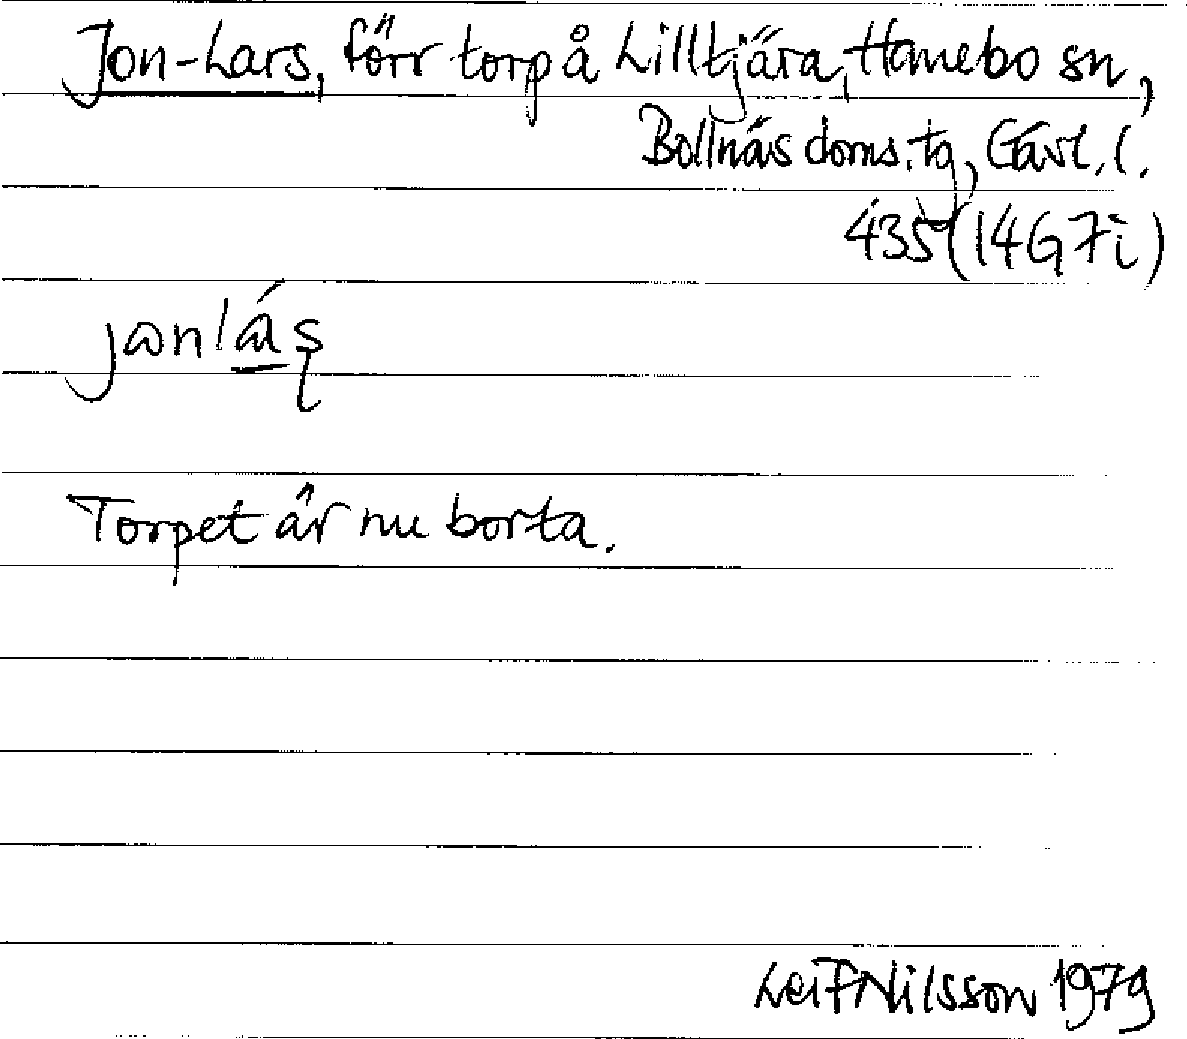 Jon-Lars, förr torp å Lilltjära, Hanebo sn,
Bollnäs doms.tg, Gävl. l.
435 (14G7i)
Torpet är nu borta.
Leif Nilsson 1979